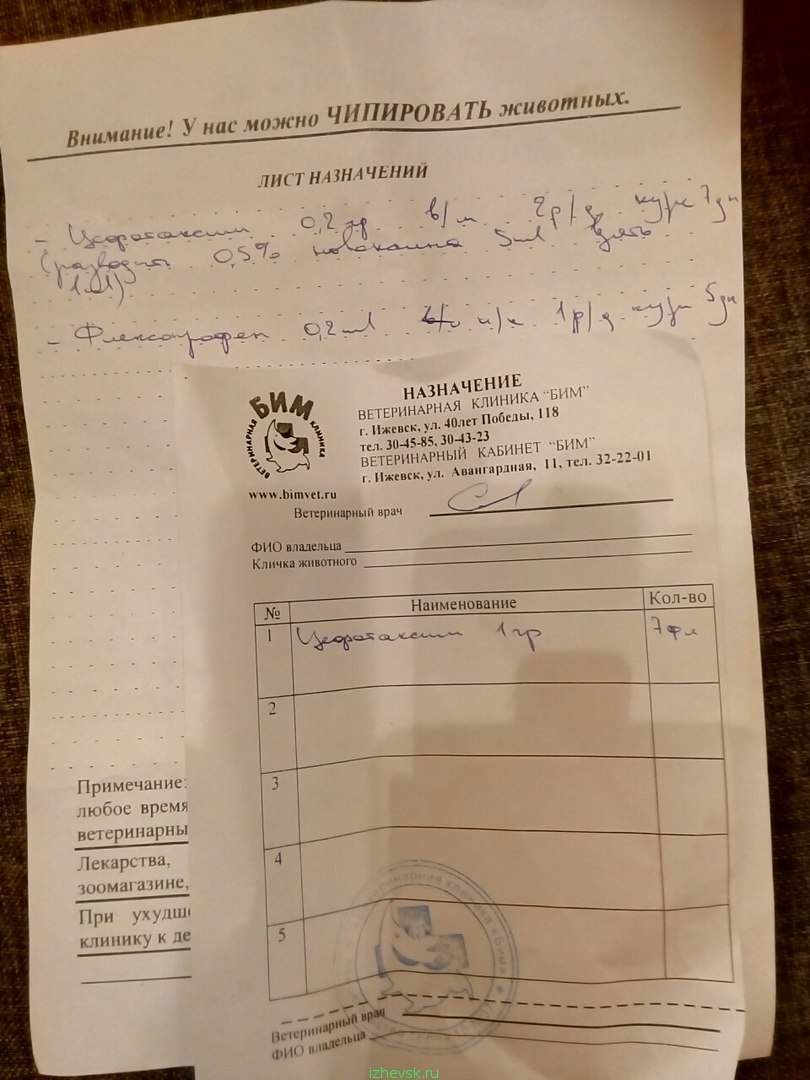 Внимание! У нас можно ЧИПИРОВАТЬ животных.
ЛИСТ НАЗНАЧЕНИЙ
- Цефотаксим 0,2 гр в/м 2р/д курс 7дн
(разводить 0,5% новокаина 5ml взять
1ml)
- Флексопрофен 0,2ml п/к 1р/д курс 5дн
БИМ
ВЕТЕРИНАРНАЯ КЛИНИКА
www.bimvet.ru
НАЗНАЧЕНИЕ
ВЕТЕРИНАРНАЯ КЛИНИКА "БИМ"
г. Ижевск, ул. 40лет Победы, 118
тел. 30-45-85, 30-43-23
ВЕТЕРИНАРНЫЙ КАБИНЕТ "БИМ"
г. Ижевск, ул. Авангардная, 11, тел. 32-22-01
Ветеринарный врач
ФИО владельца
Кличка животного
№ Наименование Кол-во
1 Цефотаксим 1гр 7фл
2
3
4
5
Примечание:
любое время
ветеринарны
Лекарства,
зоомагазине,
При ухудш
клинику к де
ветеринарная клиника «Бим»
Ветеринарный врач
ФИО владельца
izhevsk.ru